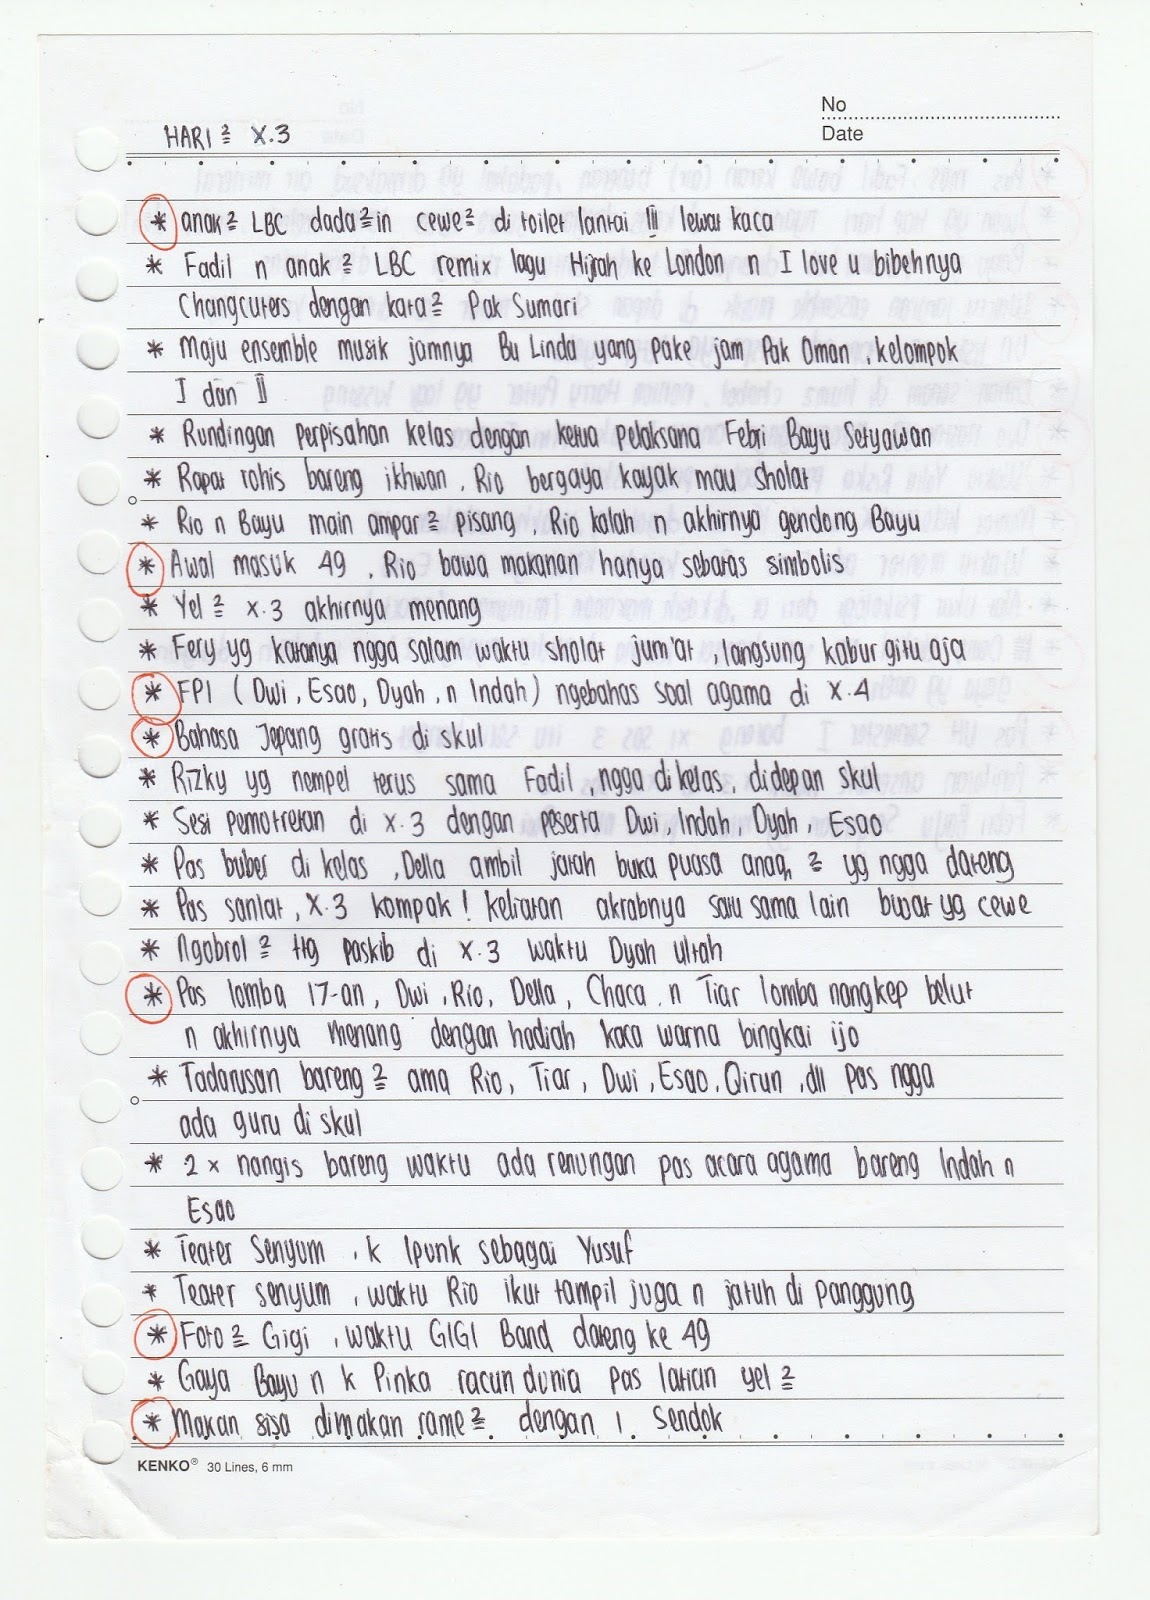 No
Date
HARI² X.3
* anak² LBC dada²in cewe² di toilet lantai III lewat kaca
* Fadil n anak² LBC remix lagu Hijrah ke London n I love u bibehnya
Changcuters dengan kata² Pak Sumari
* Maju ensemble musik jamnya Bu Linda yang pake jam Pak Oman, kelompok
I dan II
* Rundingan perpisahan kelas dengan ketua pelaksana Febri Bayu Setyawan
* Rapat rohis bareng ikhwan, Rio bergaya kayak mau sholat
* Rio n Bayu main ampar² pisang Rio kalah n akhirnya gendong Bayu
* Awal masuk 49, Rio bawa makanan hanya sebatas simbolis
* Yel² X.3 akhirnya menang
* Fery yg katanya ngga salam waktu sholat jum'at, langsung kabur gitu aja
* FPI (Dwi, Esao, Dyah, n Indah) ngebahas soal agama di X.4
* Bahasa Jepang gratis di skul
* Rizky yg nempel terus sama Fadil, ngga dikelas, didepan skul
* Sesi pemotretan di X.3 dengan peserta Dwi, Indah, Dyah, Esao
* Pas buber di kelas, Della ambil jatah buka puasa anaq² yg ngga dateng
* Pas sanlat, X.3 kompak! Keliatan akrabnya satu sama lain buat yg cewe
* Ngobrol² ttg paskib di X.3 waktu Dyah ultah
* Pas lomba 17-an, Dwi, Rio, Della, Chaca, n Tiar lomba nangkep belut
n akhirnya menang dengan hadiah kaca warna bingkai ijo
* Tadarusan bareng² ama Rio, Tiar, Dwi, Esao, Qirun, dll pas ngga
ada guru di skul
* 2x nangis bareng waktu ada renungan pas acara agama bareng Indah n
Esao
* Teater Senyum, k Ipunk sebagai Yusuf
* Teater senyum, waktu Rio ikut tampil juga n jatuh di panggung
* Foto² Gigi, waktu GIGI Band dateng ke 49
* Gaya Bayu n k Pinka racun dunia pas latian yel²
* Makan sisa dimakan rame² dengan 1 sendok
KENKO® 30 Lines, 6 mm